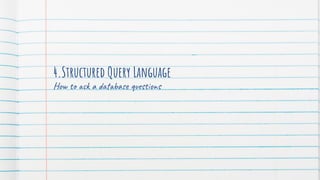 4.Structured Query Language
How to ask a database questions